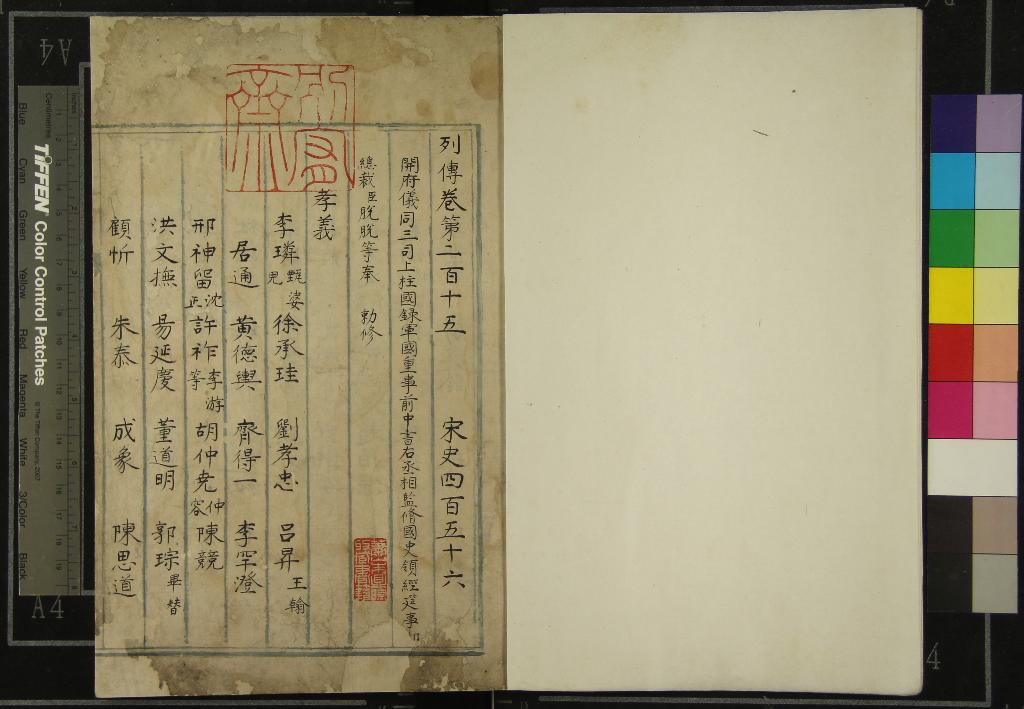 列傳卷第二百十五 宋史四百五十六
開府儀同三司上柱國錄軍國重事前中書右丞相監脩國史領經筵事
總裁臣脫脫等奉 勅修
孝義
李璘 甄婆兒 徐承珪 劉孝忠 呂昇 王翰
居通 黃德輿 齊得一 李罕澄
邢神留 沈正 許祚 李游等 胡仲堯 仲容 陳兢
洪文撫 易延慶 董道明 郭琮 畢替
顧忻 朱泰 成象 陳思道
TIFFEN Color Control Patches
© The Tiffen Company, 2007
Centimetres
Inches
Blue Cyan Green Yellow Red Magenta White 3/Color Black
A4
A4
4